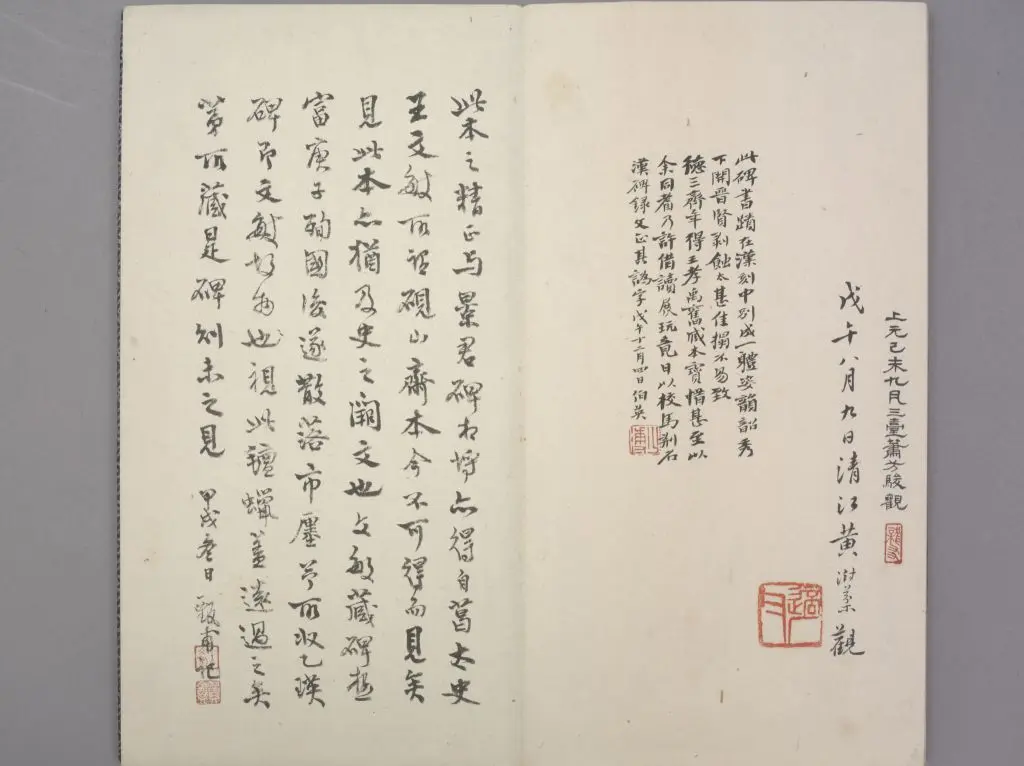 上元己未九月三臺蕭方駿觀
戊午八月九日清江黃澍棻觀
此碑書蹟在漢刻中別成一體姿韻韶秀
下開晉賢剥蝕太甚佳搨不易致
德三齋年得王孝禹舊藏本寶惜甚至以
余同耆乃許借讀展玩竟日以校馬刻石
漢碑錄文正其譌字戊午十二月四日伯英
此本之精正与景君碑相埒亦得自菖太史
王文敏所詔硯山齋本今不可得而見矣
見此本亦猶及史之闕文也文敏藏碑極
富庚子殉國後遂散落市廛予所收乙瑛
碑即文敏故物也視此氊蠟蓋遠過之矣
第所藏是碑則未之見 甲戌冬日 甫記